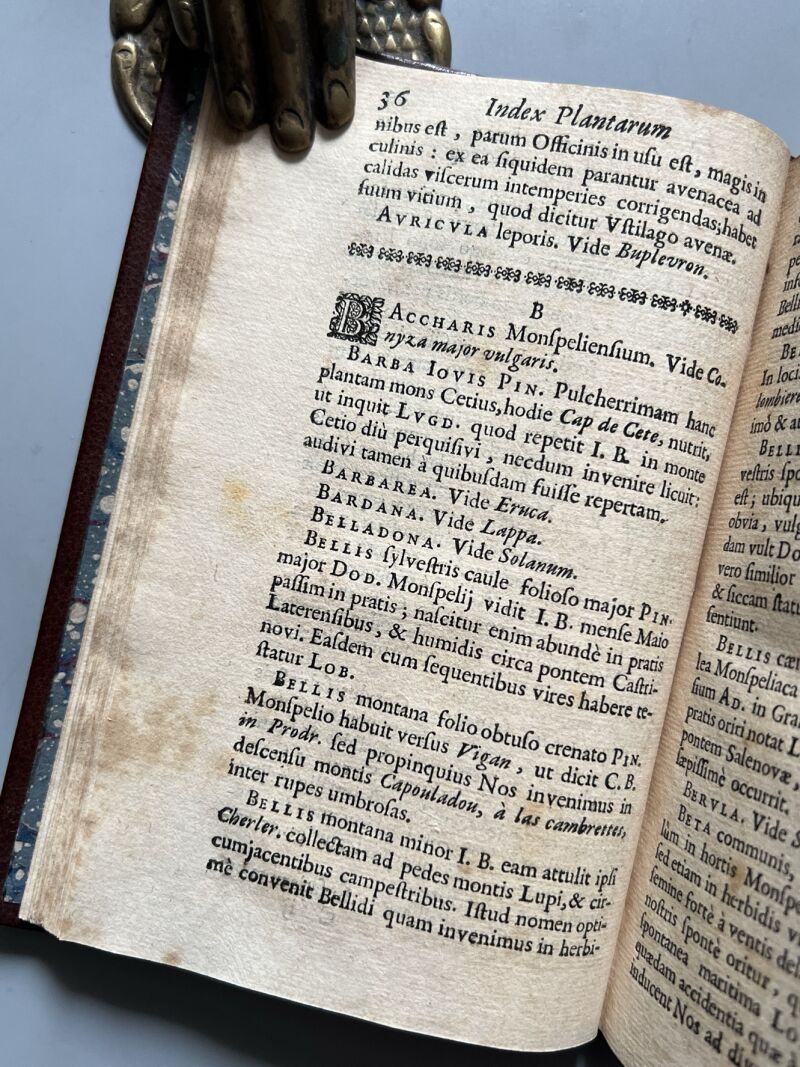 36 Index Plantarum
nibus eſt, parum Officinis in uſu eſt, magis in
culinis: ex ea ſiquidem parantur avenacea ad
calidas viſcerum intemperies corrigendas; habet
ſuum vitium, quod dicitur Vſtilago avenæ.
AVRICVLA leporis. Vide Buplevron.
B
BACCHARIS Monſpelienſium. Vide Co-
nyza major vulgaris.
BARBA IOVIS PIN. Pulcherrimam hanc
plantam mons Cetius, hodie Cap de Cete, nutrit,
ut inquit LVGD. quod repetit I. B. in monte
Cetio diù perquiſivi, necdum invenire licuit;
audivi tamen à quibuſdam fuiſſe repertam.
BARBAREA. Vide Eruca.
BARDANA. Vide Lappa.
BELLADONA. Vide Solanum.
BELLIS ſylveſtris caule folioſo major PIN.
major DOD. Monſpelij vidit I. B. menſe Maio
paſſim in pratis; naſcitur enim abundè in pratis
Laterenſibus, & humidis circa pontem Caſtri-
novi. Eaſdem cum ſequentibus vires habere te-
ſtatur LOB.
BELLIS montana folio obtuſo crenato PIN.
Monſpelio habuit verſus Vigan, ut dicit C. B.
in Prodr. ſed propinquius Nos invenimus in
deſcenſu montis Capouladou, à las cambrettes,
inter rupes umbroſas.
BELLIS montana minor I. B. eam attulit ipſi
Cherler. collectam ad pedes montis Lupi, & cir-
cumjacentibus campeſtribus. Iſtud nomen opti-
mè convenit Bellidi quam invenimus in herbi-
In loci
lombiere
imò & au
BELLI
veſtris ſpo
eſt; ubiqu
obvia, vulg
dam vult Do
vero ſimilior
& ſiccam ſtatu
ſentiunt.
BELLIS cær
lea Monſpeliaca
ſium AD. in Gra
pratis oriri notat L
pontem Salenovæ,
ſæpiſſimè occurrit.
BERVLA. Vide S
BETA communis,
lùm in hortis Monſpe
ſed etiam in herbidis v
ſemine fortè à ventis del
noſtris ſpontè oritur, q
ſpontanea maritima Lo
quædam accidentia quæ à
inducent Nos ad div